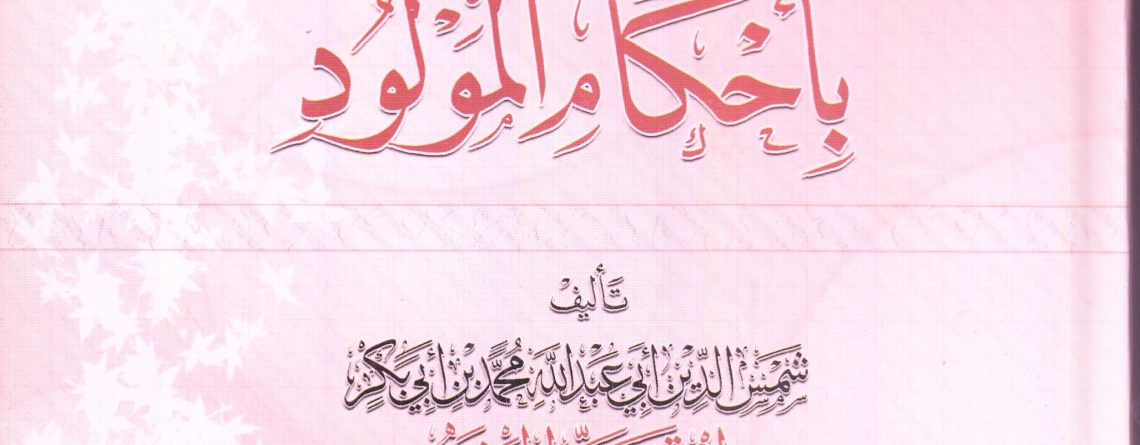 بِأَحْكَامِ الْمَوْلُودِ
تَأليف
شَمْسِ الدِّينِ أَبِي عَبْدِ اللَّهِ مُحَمَّدِ بْنِ أَبِي بَكْرٍ